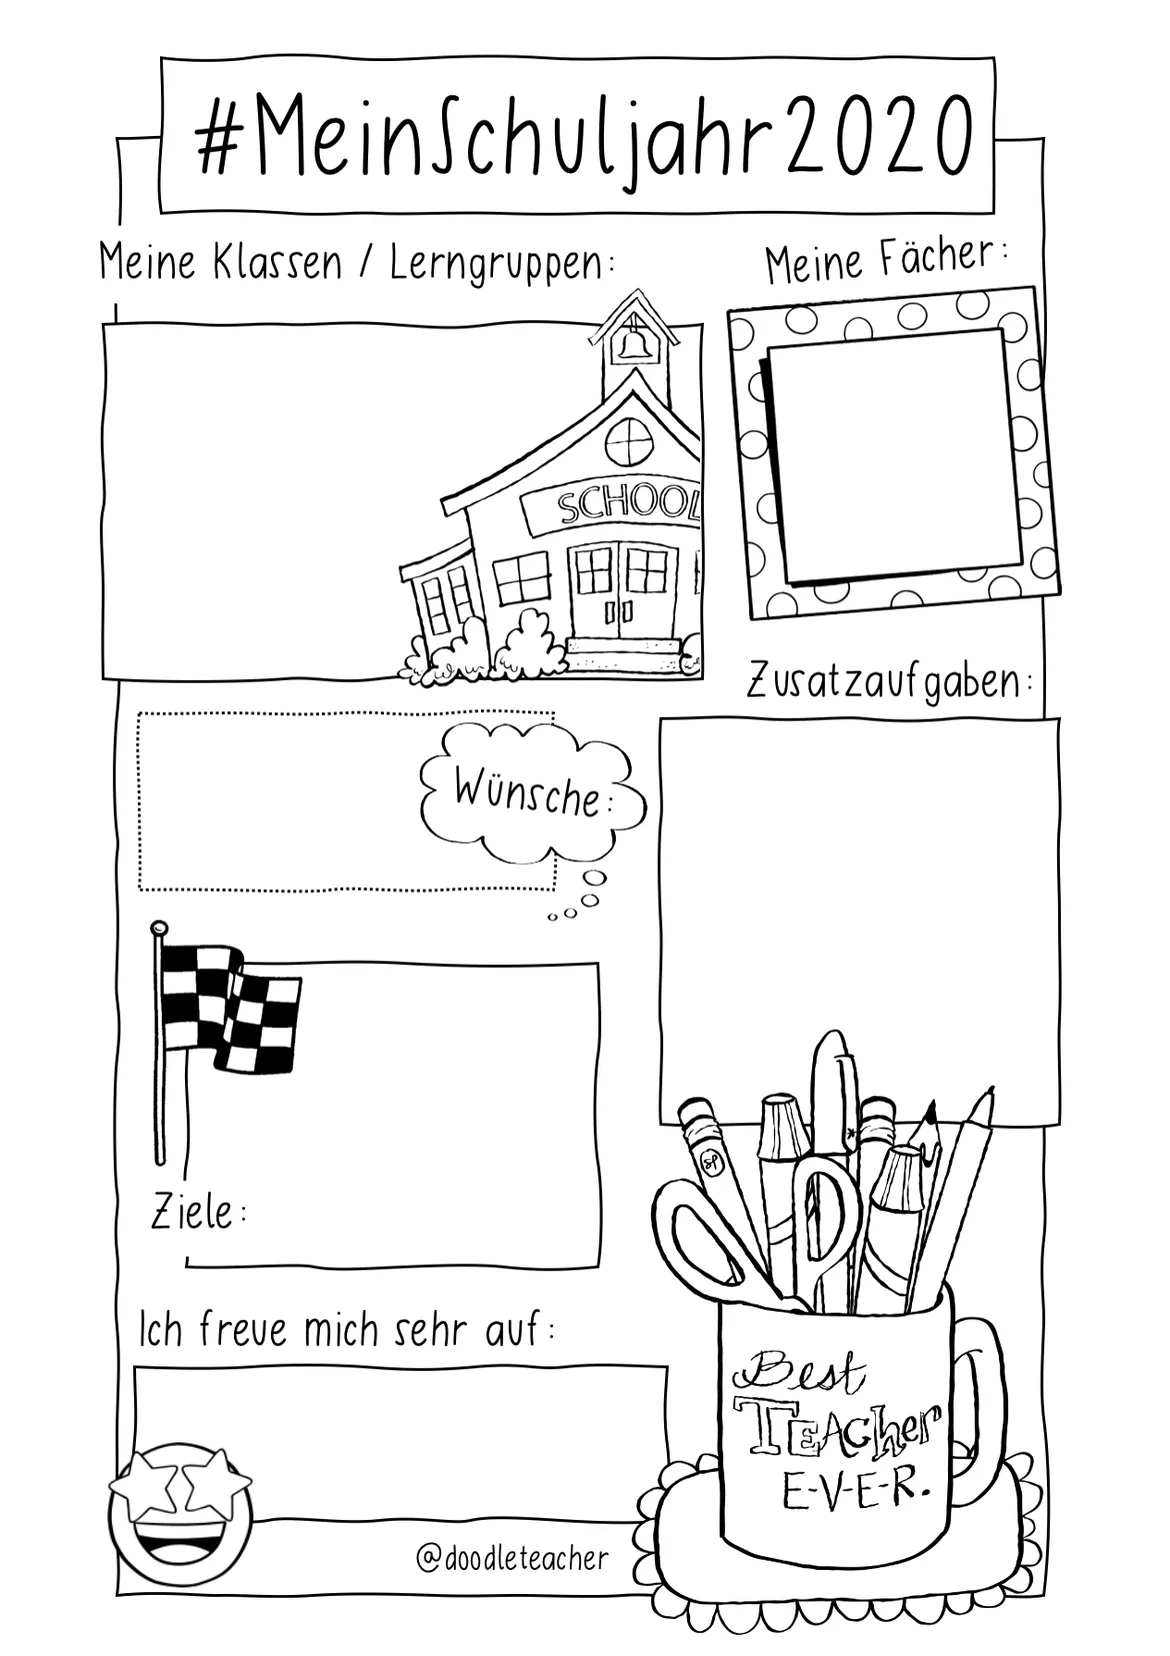 #MeinSchuljahr2020
Meine Klassen / Lerngruppen:
Meine Fächer:
SCHOOL
Zusatzaufgaben:
Wünsche:
Ziele:
Ich freue mich sehr auf:
Best
TEAcher
E-V-E-R.
@doodleteacher